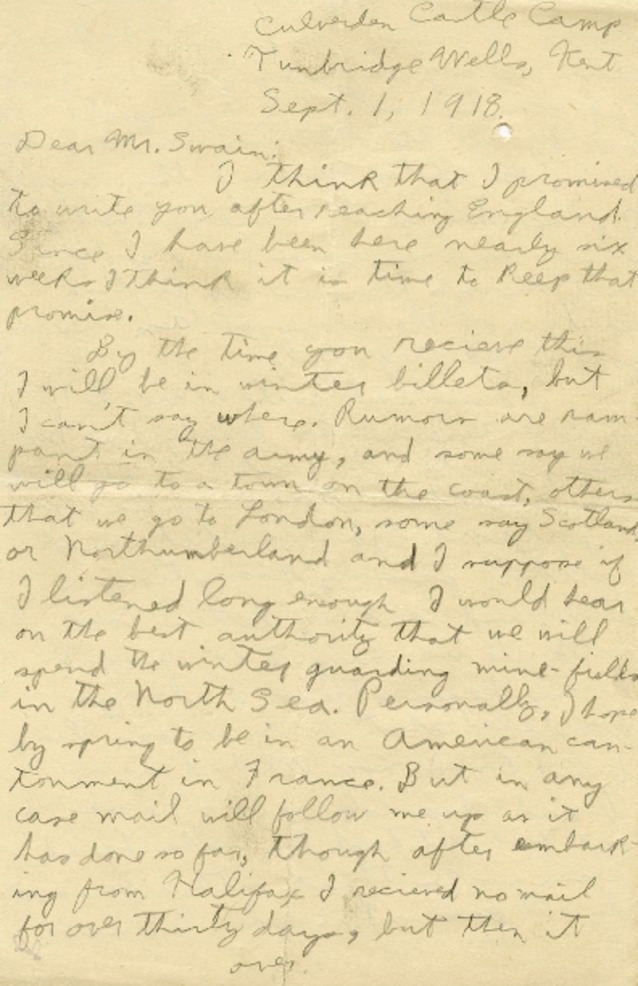 Culverden Castle Camp
Tunbridge Wells, Kent
Sept. 1, 1918.
Dear Mr. Swain:
I think that I promised
to write you after reaching England.
Since I have been here nearly six
weeks I think it is time to keep that
promise.
By the time you recieve this
I will be in winter billets, but
I can't say where. Rumors are ram-
pant in the army, and some say we
will go to a town on the coast, others
that we go to London, some say Scotland,
or Northumberland and I suppose if
I listened long enough I would hear
on the best authority that we will
spend the winter guarding mine-fields
in the North Sea. Personally, I hope
by spring to be in an American can-
tonment in France. But in any
case mail will follow me up as it
has done so far, though after embark-
ing from Halifax I recieved no mail
for over thirty days, but then it
over.